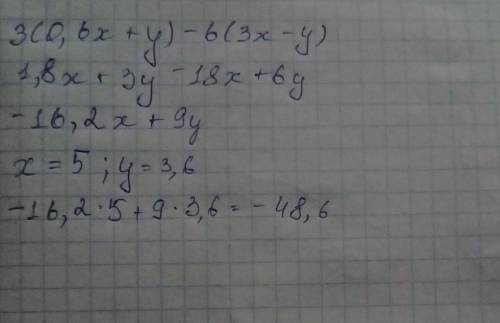 3(0,6x+y)-6(3x-y)
1,8x+3y-18x+6y
-16,2x+9y
x=5; y=3,6
-16,2·5+9·3,6=-48,6